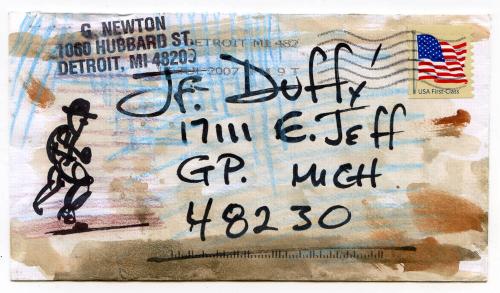 G. NEWTON
1060 HUBBARD ST.
DETROIT, MI 48209
DETROIT MI 482
2007
USA First-Class
JF. Duffy
17111 E. Jeff
GP. MICH
48230